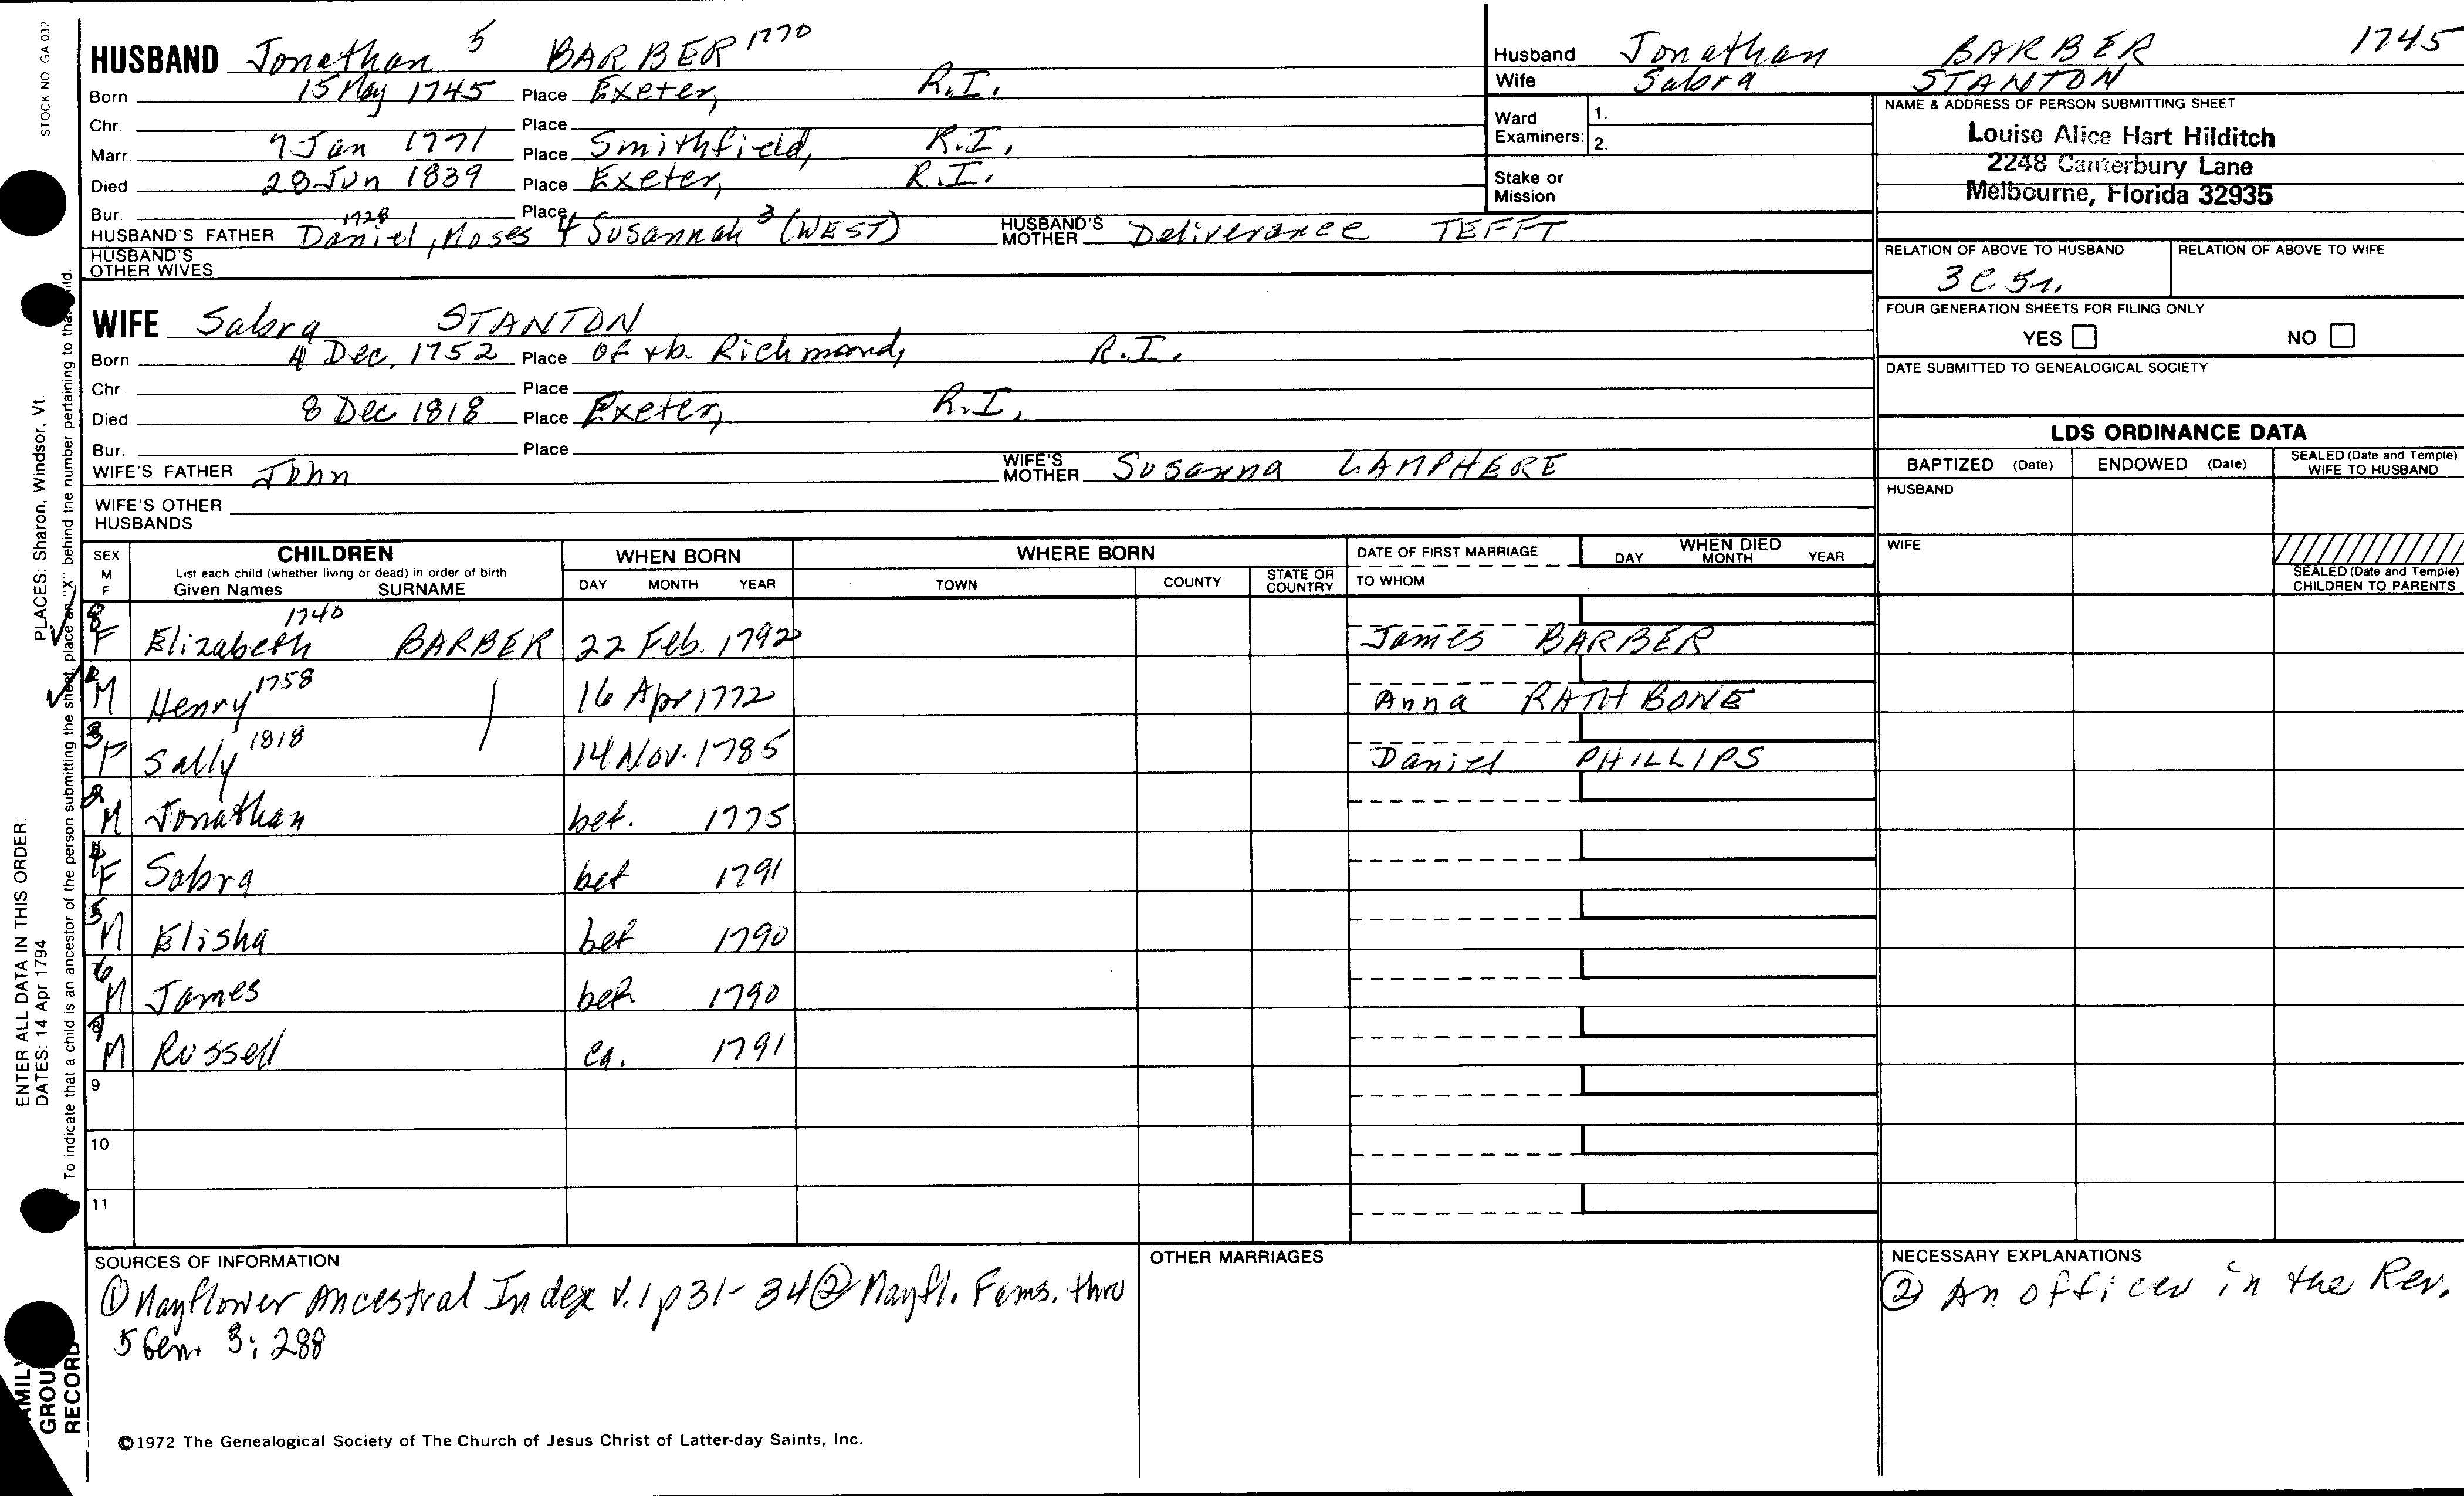 STOCK NO GA-032
HUSBAND Jonathan 5 BARBER 1770
Born 15 May 1745 Place Exeter, R.I.
Chr. Place
Marr. 7 Jan 1771 Place Smithfield, R.I.
Died 28 Jun 1839 Place Exeter, R.I.
Bur. Place
1728
HUSBAND'S FATHER Daniel, Moses 4 Susannah 3 (WEST) HUSBAND'S MOTHER Deliverance TEFFT
HUSBAND'S OTHER WIVES
WIFE Sabra STANTON
Born 4 Dec. 1752 Place of + b. Richmond, R.I.
Chr. Place
Died 8 Dec 1818 Place Exeter, R.I.
Bur. Place
WIFE'S FATHER John WIFE'S MOTHER Susanna LAMPHERE
WIFE'S OTHER HUSBANDS
Husband Jonathan BARBER 1745
Wife Sabra STANTON
Ward Examiners: 1.
2.
Stake or Mission
NAME & ADDRESS OF PERSON SUBMITTING SHEET
Louise Alice Hart Hilditch
2248 Canterbury Lane
Melbourne, Florida 32935
RELATION OF ABOVE TO HUSBAND RELATION OF ABOVE TO WIFE
3 C 5r.
FOUR GENERATION SHEETS FOR FILING ONLY
YES NO
DATE SUBMITTED TO GENEALOGICAL SOCIETY
LDS ORDINANCE DATA
BAPTIZED (Date) ENDOWED (Date) SEALED (Date and Temple) WIFE TO HUSBAND
HUSBAND
WIFE
SEALED (Date and Temple) CHILDREN TO PARENTS
SEX M F
CHILDREN
List each child (whether living or dead) in order of birth
Given Names SURNAME
WHEN BORN
DAY MONTH YEAR
WHERE BORN
TOWN COUNTY STATE OR COUNTRY
DATE OF FIRST MARRIAGE
TO WHOM
WHEN DIED
DAY MONTH YEAR
8 F Elizabeth 1740 BARBER 22 Feb. 1792 James BARBER
M Henry 1758 16 Apr 1772 Anna RATHBONE
3 F Sally 1818 14 Nov. 1785 Daniel PHILLIPS
2 M Jonathan bet. 1775
4 F Sabra bet 1791
5 M Elisha bet 1790
6 M James bet. 1790
M Russell ca. 1791
9
10
11
SOURCES OF INFORMATION
① Mayflower Ancestral Index v.1 p 31-34 ② Mayfl. Fams. thru
5 Gen. 3: 288
OTHER MARRIAGES
NECESSARY EXPLANATIONS
② An officer in the Rev.
©1972 The Genealogical Society of The Church of Jesus Christ of Latter-day Saints, Inc.
ENTER ALL DATA IN THIS ORDER:
DATES: 14 Apr 1794 PLACES: Sharon, Windsor, Vt.
To indicate that a child is an ancestor of the person submitting the sheet, place an "X" behind the number pertaining to that child.
GROUP
RECORD